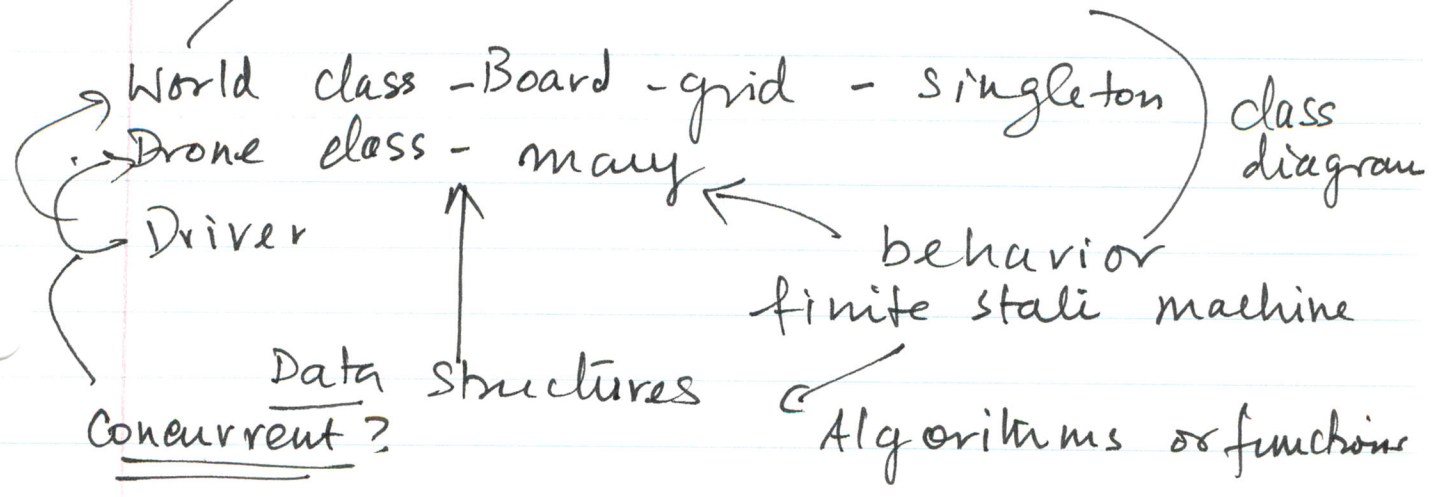 World class - Board - grid - singleton
class
diagram
Drone class - many
Driver
behavior
finite state machine
Data structures
Concurrent?
Algorithms or functions